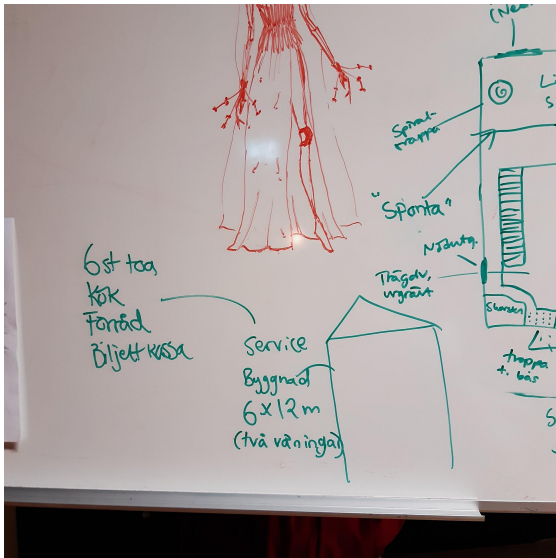 6st toa
Kök
Förråd
Biljett kassa
Service
Byggnad
6 x 12 m
(två våningar)
Spiral-
trappa
"Sponta"
Nödutg.
Trägolv,
Skorsten
trappa
t. bås